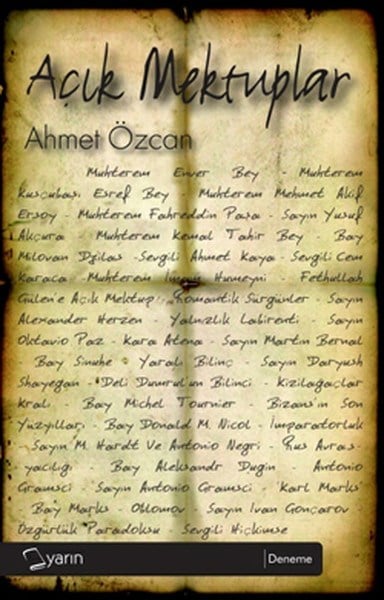 Açık Mektuplar
Ahmet Özcan
Muhterem Enver Bey - Muhterem
Kuşçubaşı Eşref Bey - Muhterem Mehmet Akif
Ersoy - Muhterem Fahreddin Paşa - Sayın Yusuf
Akçura Muhterem Kemal Tahir Bey - Bay
Milovan Djilas -Sevgili Ahmet Kaya - Sevgili Cem
Karaca - Muhterem İmam Humeyni - Fethullah
Gülen'e Açık Mektup Romantik Sürgünler - Sayın
Alexander Herzen - Yalnızlık Labirenti Sayın
Oktavio Paz - Kara Atena - Sayın Martin Bernal
- Bay Sinuhe - Yaralı Bilinç - Sayın Daryush
Shayegan - Deli Dumrul'un Bilinci - Kızılağaçlar
Kralı Bay Michel Tournier Bizans'ın Son
Yüzyılları - Bay Donald M. Nicol - İmparatorluk
- Sayın M. Hardt Ve Antonio Negri - Rus Avras-
yacılığı Bay Aleksandr Dugin - Antonio
Gramsci Sayın Antonio Gramsci - Karl Marks
Bay Marks - Oblomov - Sayın İvan Gonçarov -
Özgürlük Paradoksu Sevgili Hiçkimse
yarın
Deneme